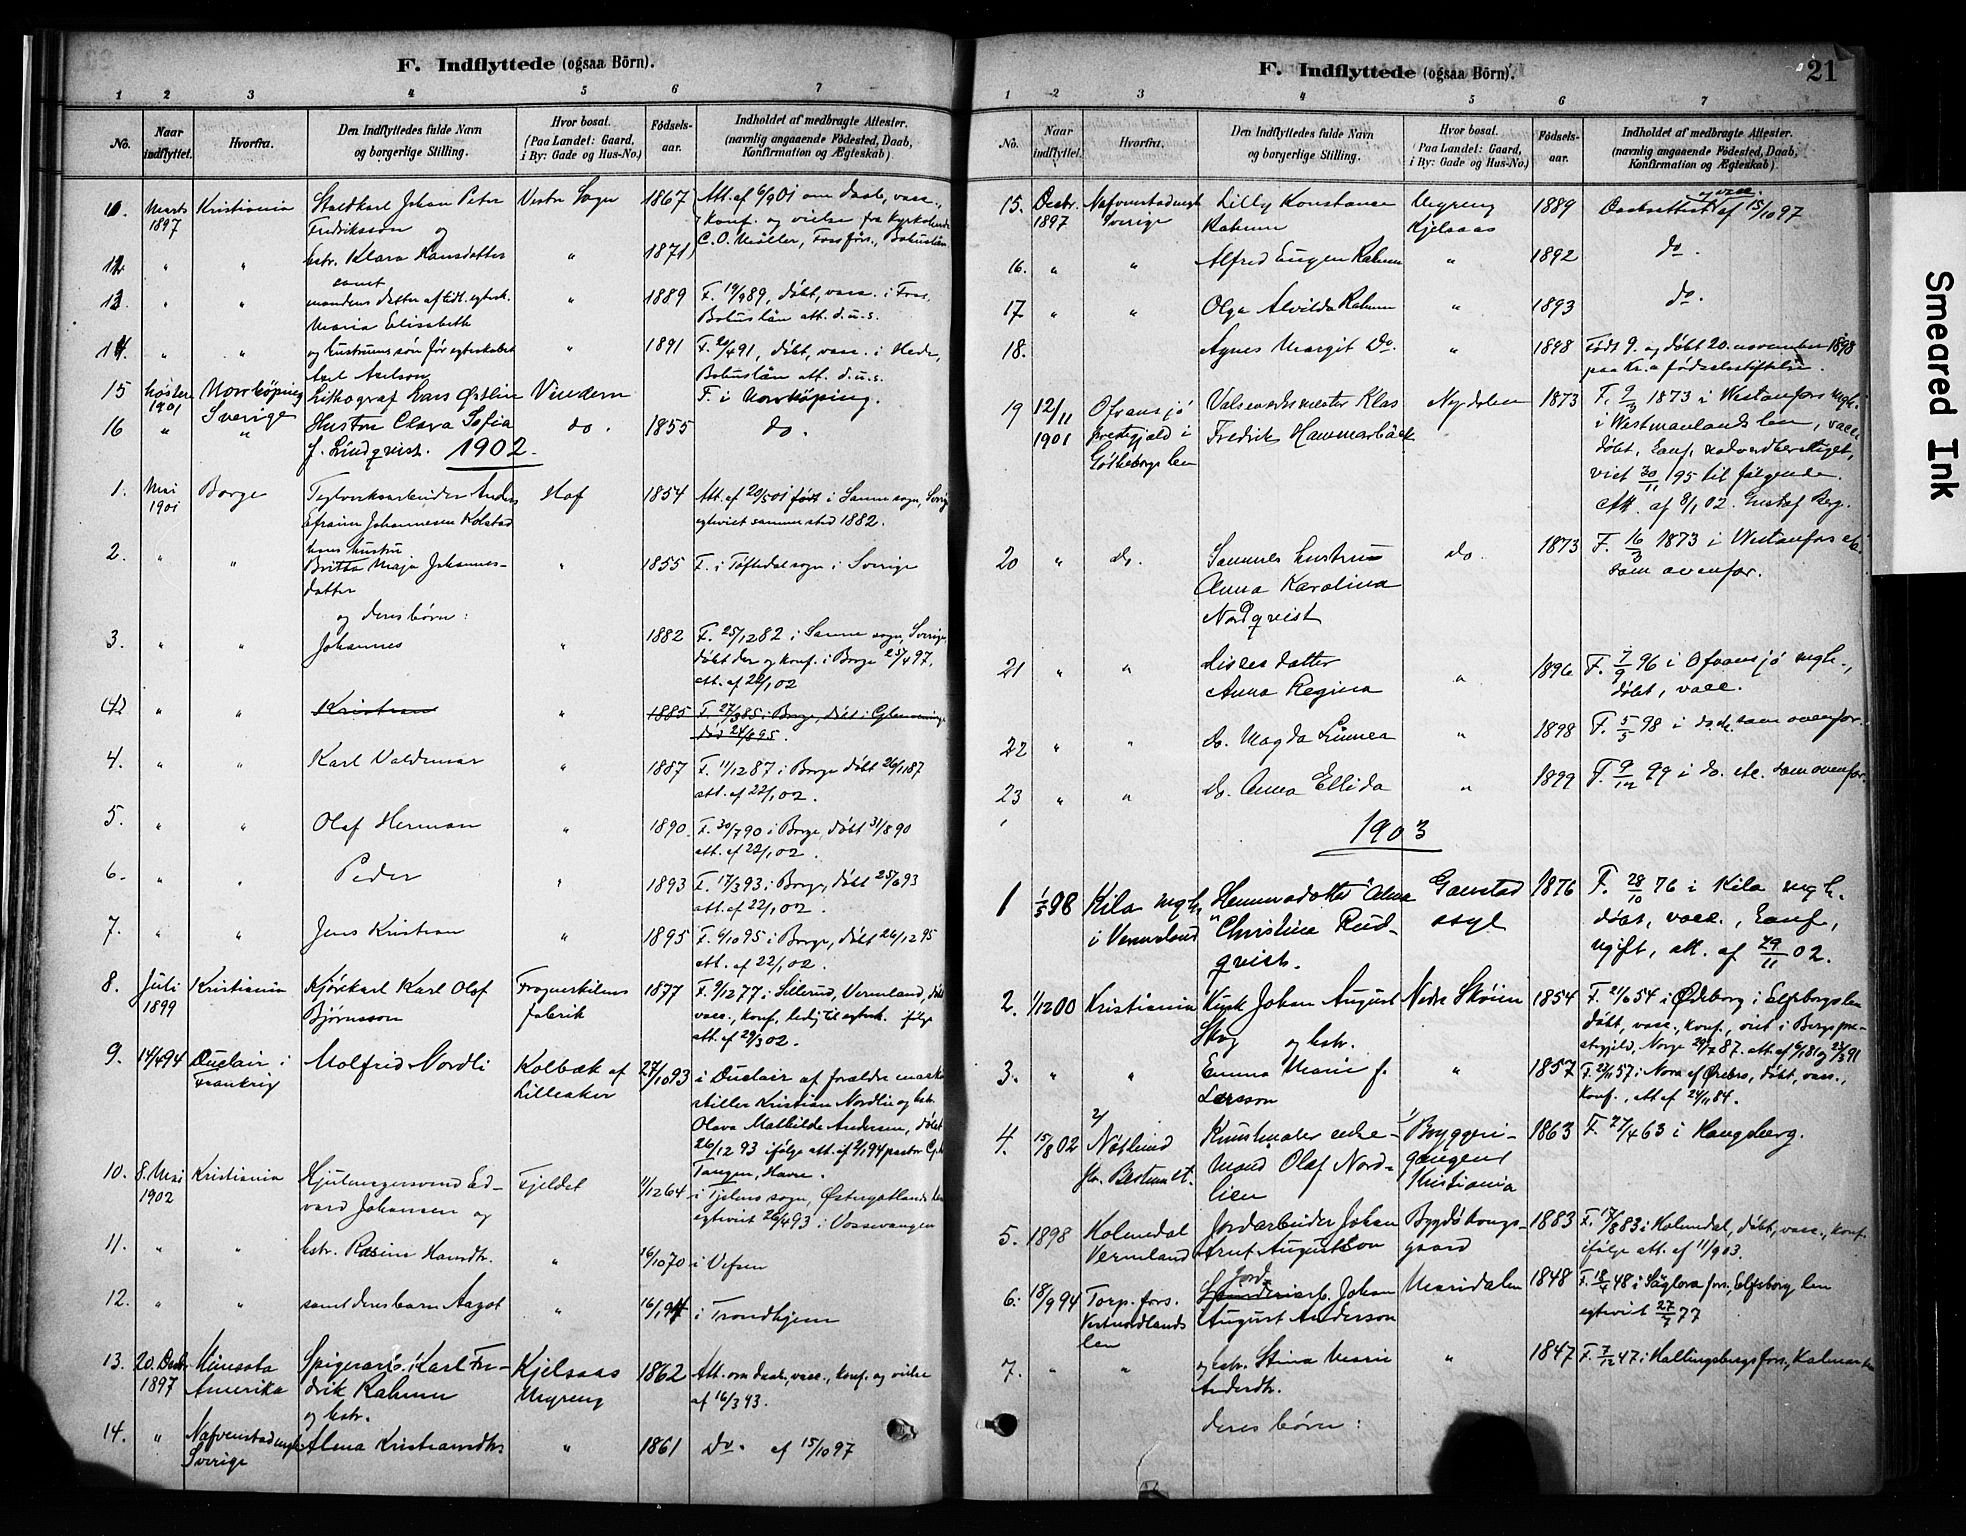 F. Indflyttede (ogsaa Börn).
1 2 3 4 5 6 7
No. Naar indflyttet. Hvorfra. Den Indflyttedes fulde Navn og borgerlige Stilling. Hvor bosat. (Paa Landet: Gaard, i By: Gade og Hus-No.) Fødsels-aar. Indholdet af medbragte Attester. (navnlig angaaende Fødested, Daab, Konfirmation og Ægteskab).
Marts 1897 Kristiania Staldkarl Johan Peter Fredriksson og Vestre Sogn 1867 Att. af 6/9 01 om daab, vacc., konf. og vielse fra
C. O. Möller, Foss förs., Bohuslän
" " hstr. Klara Hansdatter samt " 1871
" " mandens datter af tidl. egtesk. Maria Elisabeth " 1889 F. 19/9 89, døbt, vacc. i Foss, Bohuslän att. d.u.s.
" " og hustruens søn før egteskabet Axel Axelson " 1891 F. 20/4 91, døbt, vacc. i Hede, Bohuslän att. d.u.s.
15 Høsten 1901 Norrköping Sverige Lithograf Lars Østlin Vindern F. i Norrköping.
16 " " Hustru Clara Sofia f. Lindqvist. do. 1855 do.
1902
1. Mai 1901 Borge Teglverksarbeider Anders Efraim Johannesen Kolstad Hof 1854 Att. af 20/5 01 født i Sanne sogn, Sverige egteviet sammested 1882.
2. " " hans hustru Britta Maja Johannes-datter " 1855 F. i Töftedal sogn i Sverige
og deres børn:
3. " " Johannes " 1882 F. 25/12 82 i Sanne sogn, Sverige, døbt der og konf. i Borge 25/4 97. att. af 22/1 02
(4) " " Kristian " 1885 F. 27/3 85 i Borge, døbt i
4. " " Karl Valdemar " 1887 F. 11/12 87 i Borge døbt 26/1 87 att. af 22/1 02.
5. " " Olaf Herman " 1890 F. 30/7 90 i Borge, døbt 31/8 90 att. af 22/1 02.
6. " " Peder " 1893 F. 17/3 93 i Borge, døbt 25/6 93 att. af 22/1 02.
7. " " Jens Kristian " 1895 F. 6/10 95 i Borge, døbt 26/12 95 att. af 22/1 02.
8. Juli 1899 Kristiania Kjørekarl Karl Olof Bjørnsson Frognerkilens fabrik 1877 F. 9/12 77 i Sillerud, Vermland, døbt vacc., konf., ledig til egtesk. ifølge att. af 29/3 02.
9. 14/4 94 Duclair i Frankrig Molfrid Nordli Kolbæk af Lilleaker 27/10 93 i Duclair af forældre
stiller Kristian Nordlie og hstr. Olava Mathilde Andersen, døbt 26/12 93 ifølge att. af 2/1 94 pastor
Tangen, Havre.
10. 8. Mai 1902 Kristiania Hjulmagersvend Edvard Johansen og Fjeldet 11/12 64 i Tjelens sogn, Østergøtlands len egteviet 26/4 93 i Vossevangen
11. " " hstr. Rasine Hansdtr. " 16/10 70 i Vefsen
12. " " samt deres barn Aagot " 16/1 94 i Trondhjem
13. 20. Decbr. 1897 Minesota Amerika Spigerarb. Karl Fredrik Rahmn og hstr. Kjelsaas Nygreng 1862 Att. om daab, vacc., konf. og vielse af 16/3 93.
14. " Nafvenstad mgh. Sverige Alma Kristiansdtr. " 1861 Do. af 15/10 97
F. Indflyttede (ogsaa Börn). 21
1 2 3 4 5 6 7
No. Naar indflyttet. Hvorfra. Den Indflyttedes fulde Navn og borgerlige Stilling. Hvor bosat. (Paa Landet: Gaard, i By: Gade og Hus-No.) Fødsels-aar. Indholdet af medbragte Attester. (navnlig angaaende Fødested, Daab, Konfirmation og Ægteskab).
15. Decbr. 1897 Nafvenstad mgh Sverige Lilly Konstanse Rahmn Nygreng Kjelsaas 1889 Daabsattest og vacc. af 15/10 97
16. " " Alfred Eugen Rahmn " 1892 do.
17 " " Olga Alvilda Rahmn " 1893 do.
18. Agnes Margit Do. " 1898 Født 9. og døbt 20. november 1898 paa Kr.a fødselsstiftelse.
19 12/11 1901 Ofvansjö prestegjæld i Götheborgs len Valseverksmester Klas Fredrik Hammarbäck Nydalen 1873 F. 9/3 1873 i Westanfors mgh. i Westmanlands len, vacc. døbt, konf., nadverdberettiget, viet 30/11 95 til følgende. Att. af 8/1 02. Gustaf Berg.
20 " do. Sammes hustru Anna Karolina Nordqvist do. 1873 F. 16/3 1873 i Westanfors etc. som ovenfor.
21 " " Disses datter Anna Regina " 1896 F. 7/9 96 i Ofvansjö mgh., døbt, vacc.
22 " " do. Magda Linnea " 1898 F. 5/5 98 i do. etc. som ovenfor.
23 " " do. Anna Ellida " 1899 F. 9/12 99 i do. etc. som ovenfor.
1903
1 1/5 98 Kila mgh. i Vermland Hemmadotter Anna Christina Rudqvist. Gaustad asyl 1876 F. 28/10 76 i Kila mgh. døbt, vacc., konf., ugift, att. af 29/11 02.
2. 1/12 00 Kristiania Kusk Johan August Skog og hstr. Nedre Skøien 1854 F. 21/6 54 i Ødeborg i Elfsborgs len døbt, vacc., konf., viet i Bergs prestegjeld, Norge 29/7 87. att. af 6/1 81 og 23/3 91
3. " " Emma Marie f. Larsson " 1857 F. 22/11 57 i Nora af Ørebro, døbt, vacc., konf., att af 24/11 84.
4. 15/8 02 2/ Nøtlund Kunstmaler enkemand Olaf Nordlien 1/ Bryggerigangen 1 Kristiania 1863 F. 27/4 63 i Kongsberg.
5. 1898 Holmedal Vermland Jordarbeider Johan Arnt Augustson Bygdø kongsgaard 1883 F. 17/8 83 i Holmedal, døbt, vacc., konf. ifølge att. af 11/9 03.
6. 18/9 94 Torp fors. Vestnordlands len Jordarb. Johan August Anderson Maridalen 1848 F. 18/4 48 i Säglora fors., Elfsborg len egteviet 27/5 77
7. " " og hstr. Stina Marie Andersdtr. " 1847 F. 7/12 47 i Hallingsbergs fors., Kalmar len
deres børn:
Smeared Ink